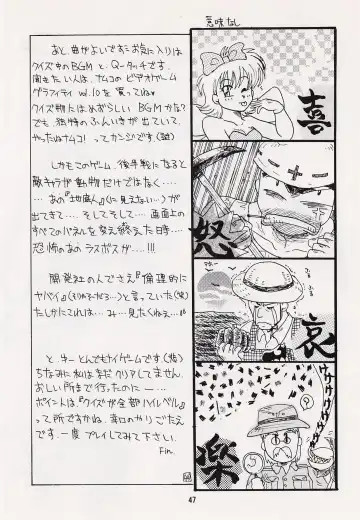 意味なし
あと 曲がよいです。お気に入りは
クイズ中のBGMと、Q-タッチです。
聞きたい人は、ナムコのビデオゲーム
グラフィティ vol.10を買ってね♥
クイズ物にはめずらしい BGMかな?
でも、独特のふんいきが出ていて、
やったぬナムコ! ってカンジです。(謎)
しかもこのゲーム、後半戦になると
敵キャラが動物だけではなく……
…あの『地底人』(に見えない…)が
出てきて… そしてそして… 画面上の
すべてのパネルを答え終えた時…
恐怖のあの ラスボスが…!!!
開発社の人でさえ『倫理的に
ヤバイ』と言っていた(笑)
たしかにこれは… み…見たくねぇ…
と、まーとんでもナイゲームです。
ちなみに私はまだ クリアしてません。
おしい所まで行ったのにー…
ポイントは、『クイズが全部ハイレベル』
って所ですかね。辛口のやりごたえ
です。一度 プレイしてみて下さい。
Fin.
喜
怒
哀
楽
ウケケケケケケケ
47